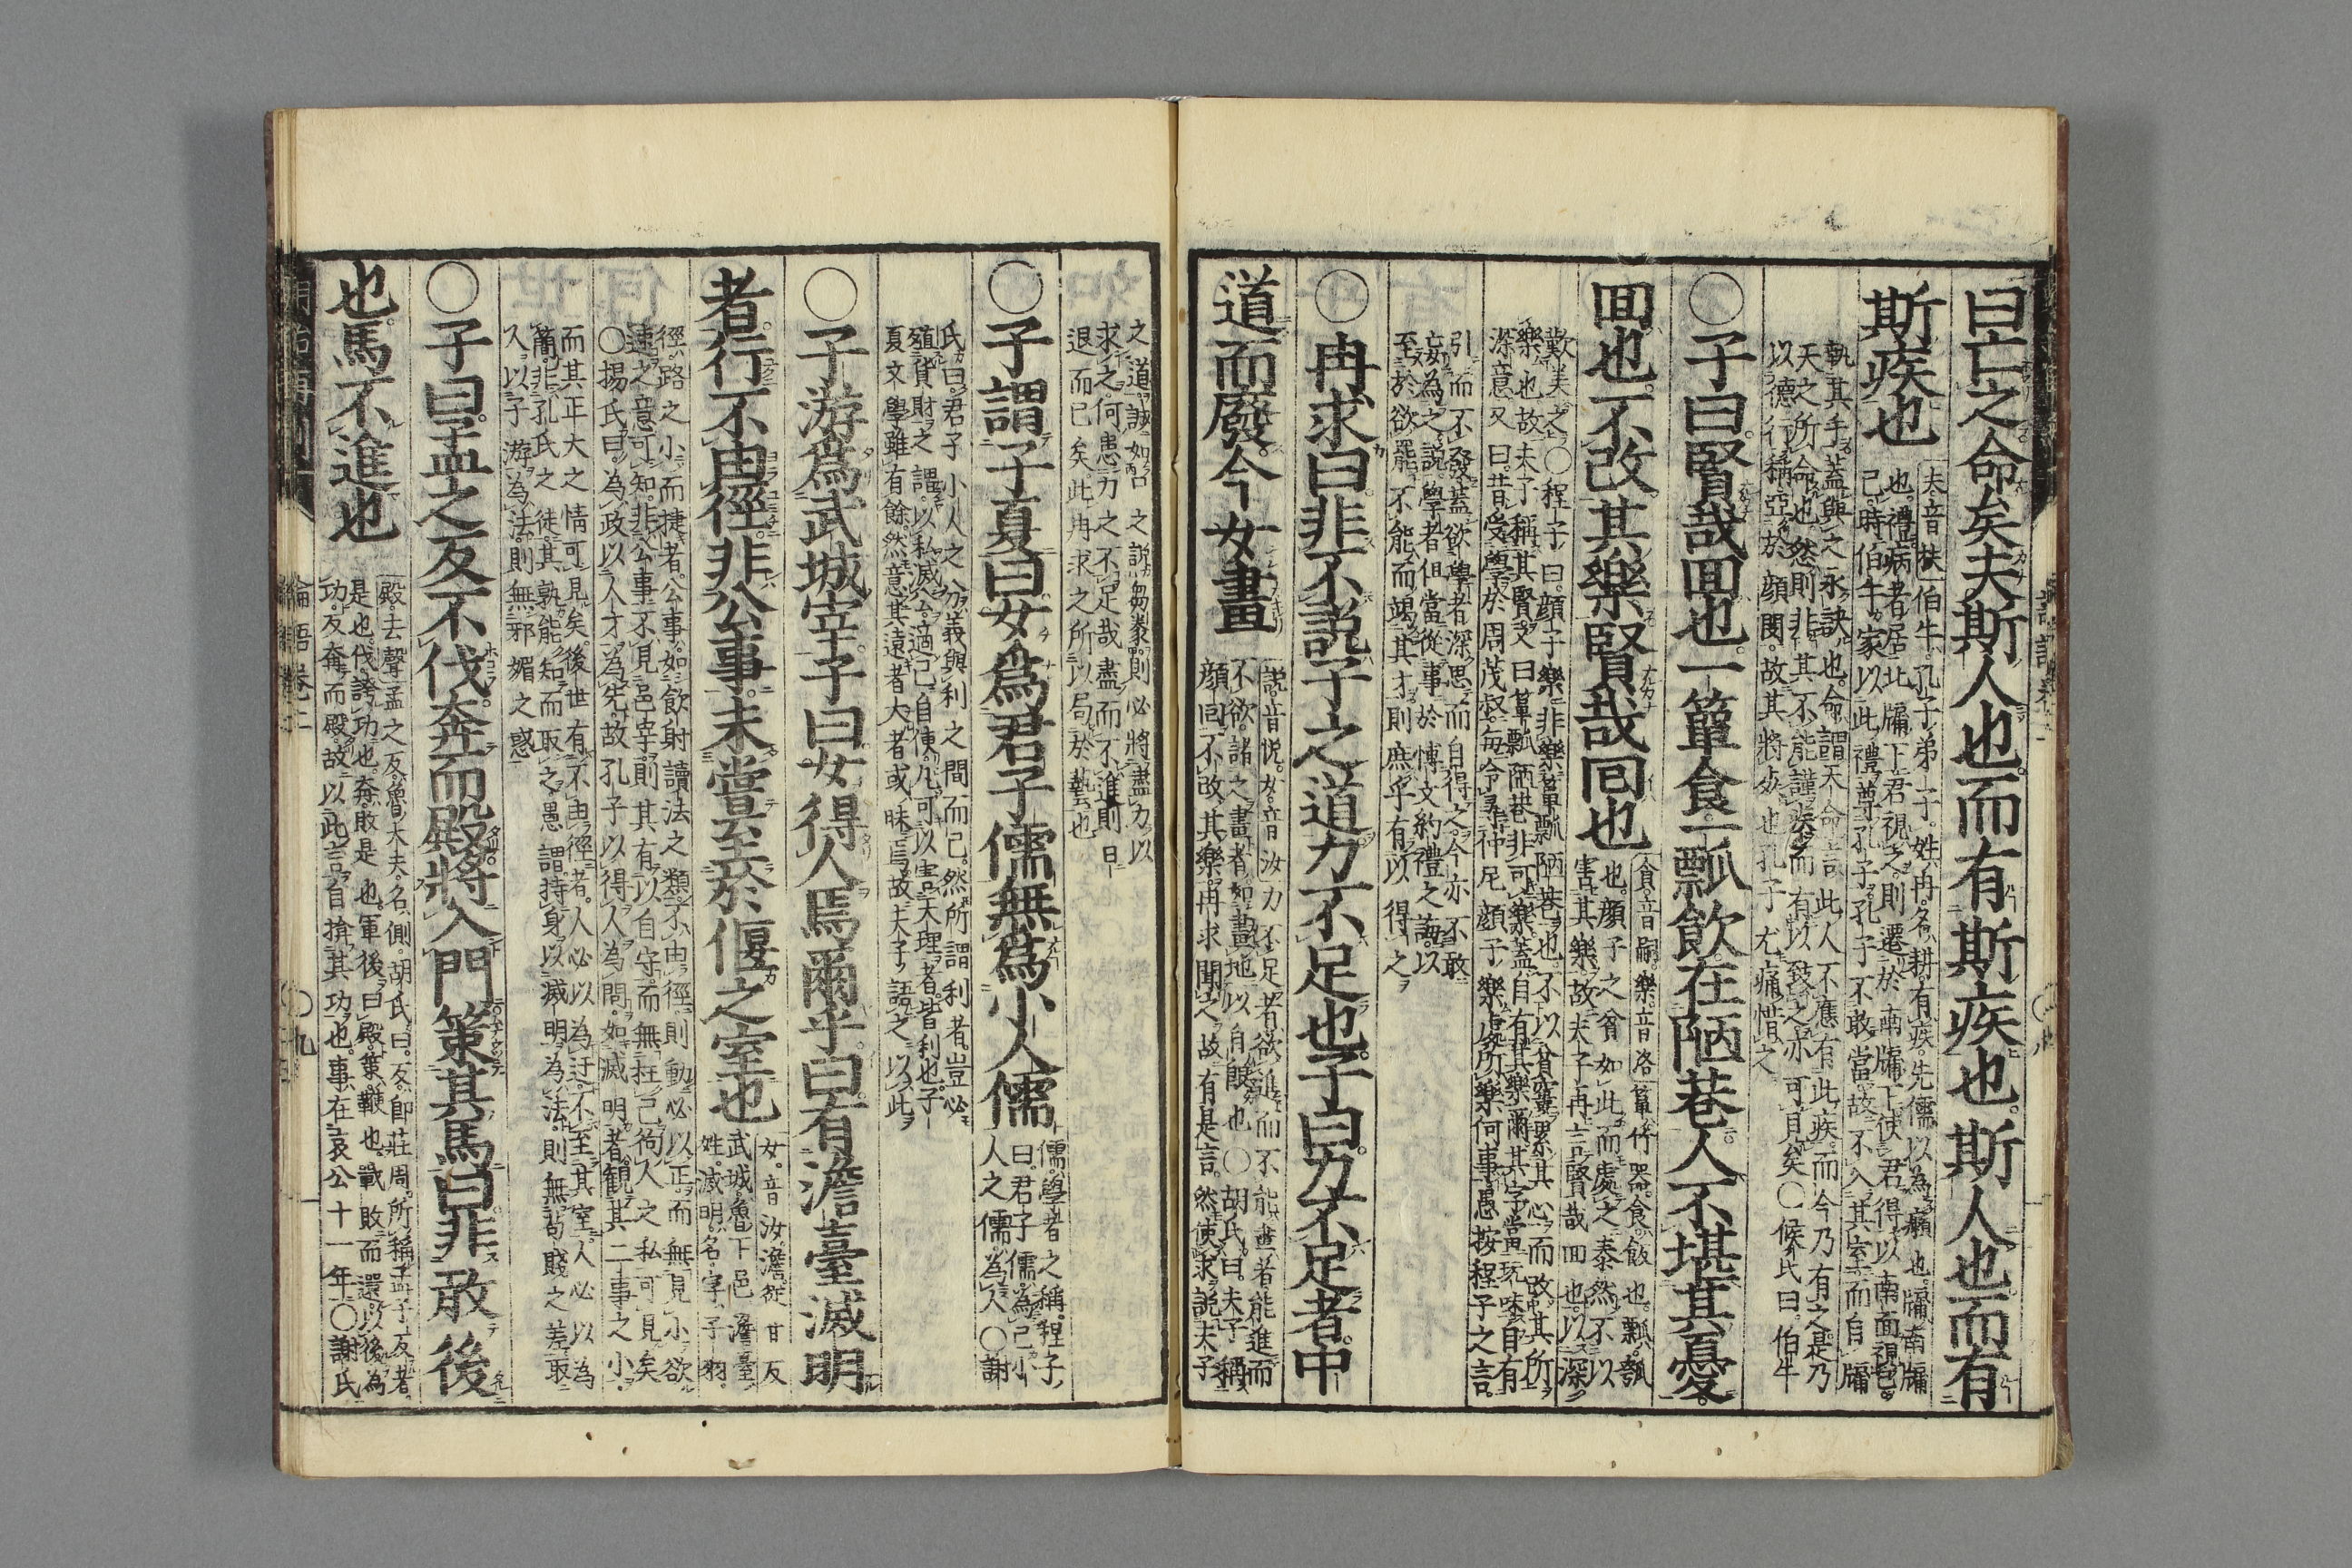 曰亡之命矣夫斯人也而有斯疾也斯人也而有
斯疾也
夫音扶伯牛孔子弟子姓冉名耕有疾先儒以為癩也牖南牖
也禮病者居北牖下君視之則遷於南牖下使君得以南面視己
時伯牛家以此禮尊孔子孔子不敢當故不入其室而自牖
執其手蓋與之永訣也命謂天命言此人不應有此疾而今乃有之是乃
天之所命也然則非其不能謹疾而有以致之亦可見矣〇侯氏曰伯牛
以德行稱亞於顔閔故其將死也孔子尤痛惜之
〇子曰賢哉囬也一簞食一瓢飲在陋巷人不堪其憂
囬也不改其樂賢哉囘也
食音嗣樂音洛簞竹器食飯也瓢瓠
也顔子之貧如此而處之泰然不以
害其樂故夫子再言賢哉回也以深
歎美之〇程子曰顔子之樂非樂簞瓢陋巷也不以貧窶累其心而改其所
樂也故夫子稱其賢又曰簞瓢陋巷非可樂蓋自有其樂爾其字當玩味自有
深意又曰昔受學於周茂叔每令尋仲尼顔子樂處所樂何事愚按程子之言
引而不發蓋欲學者深思而自得之今亦不敢
妄為之說學者但當從事於博文約禮之誨以
至於欲罷不能而竭其才則庶乎有以得之
〇冉求曰非不説子之道力不足也子曰力不足者中
道而廢今女畫
説音悅女音汝力不足者欲進而不能畫者能進而
不欲謂之畫者如畫地以自限也〇胡氏曰夫子稱
顔回不改其樂冉求聞之故有是言然使求説夫子
之道誠如口之説芻豢則必將盡力以
求之何患力之不足哉畫而不進則日
退而已矣此冉求之所以局於藝也
〇子謂子夏曰女為君子儒無為小人儒
儒學者之稱程子
曰君子儒為己小
人之儒為人〇謝
氏曰君子小人之分義與利之間而已然所謂利者豈必
殖貨財之謂以私滅公適己自便凡可以害天理者皆利也子
夏文學雖有餘然意其遠者大者或昧焉故夫子語之以此
〇子游為武城宰子曰女得人焉爾乎曰有澹臺滅明
者行不由徑非公事未嘗至於偃之室也
女音汝澹徒甘反
武城魯下邑澹臺
姓滅明名字子羽
徑路之小而捷者公事如飲射讀法之類不由徑則動必以正而無見小欲
速之意可知非公事不見邑宰則其有以自守而無枉己徇人之私可見矣
〇楊氏曰為政以人才為先故孔子以得人為問如滅明者觀其二事之小
而其正大之情可見矣後世有不由徑者人必以為迂不至其室人必以為
簡非孔氏之徒其孰能知而取之愚謂持身以滅明為法則無苟賤之羞取
人以子游為法則無邪媚之惑
〇子曰孟之反不伐奔而殿將入門策其馬曰非敢後
也馬不進也
殿去聲孟之反魯大夫名側胡氏曰反即莊周所稱孟子反者
是也伐誇功也奔敗走也軍後曰殿策鞭也戰敗而還以後為
功反奔而殿故以此言自揜其功也事在哀公十一年〇謝氏
論語卷三
〇九